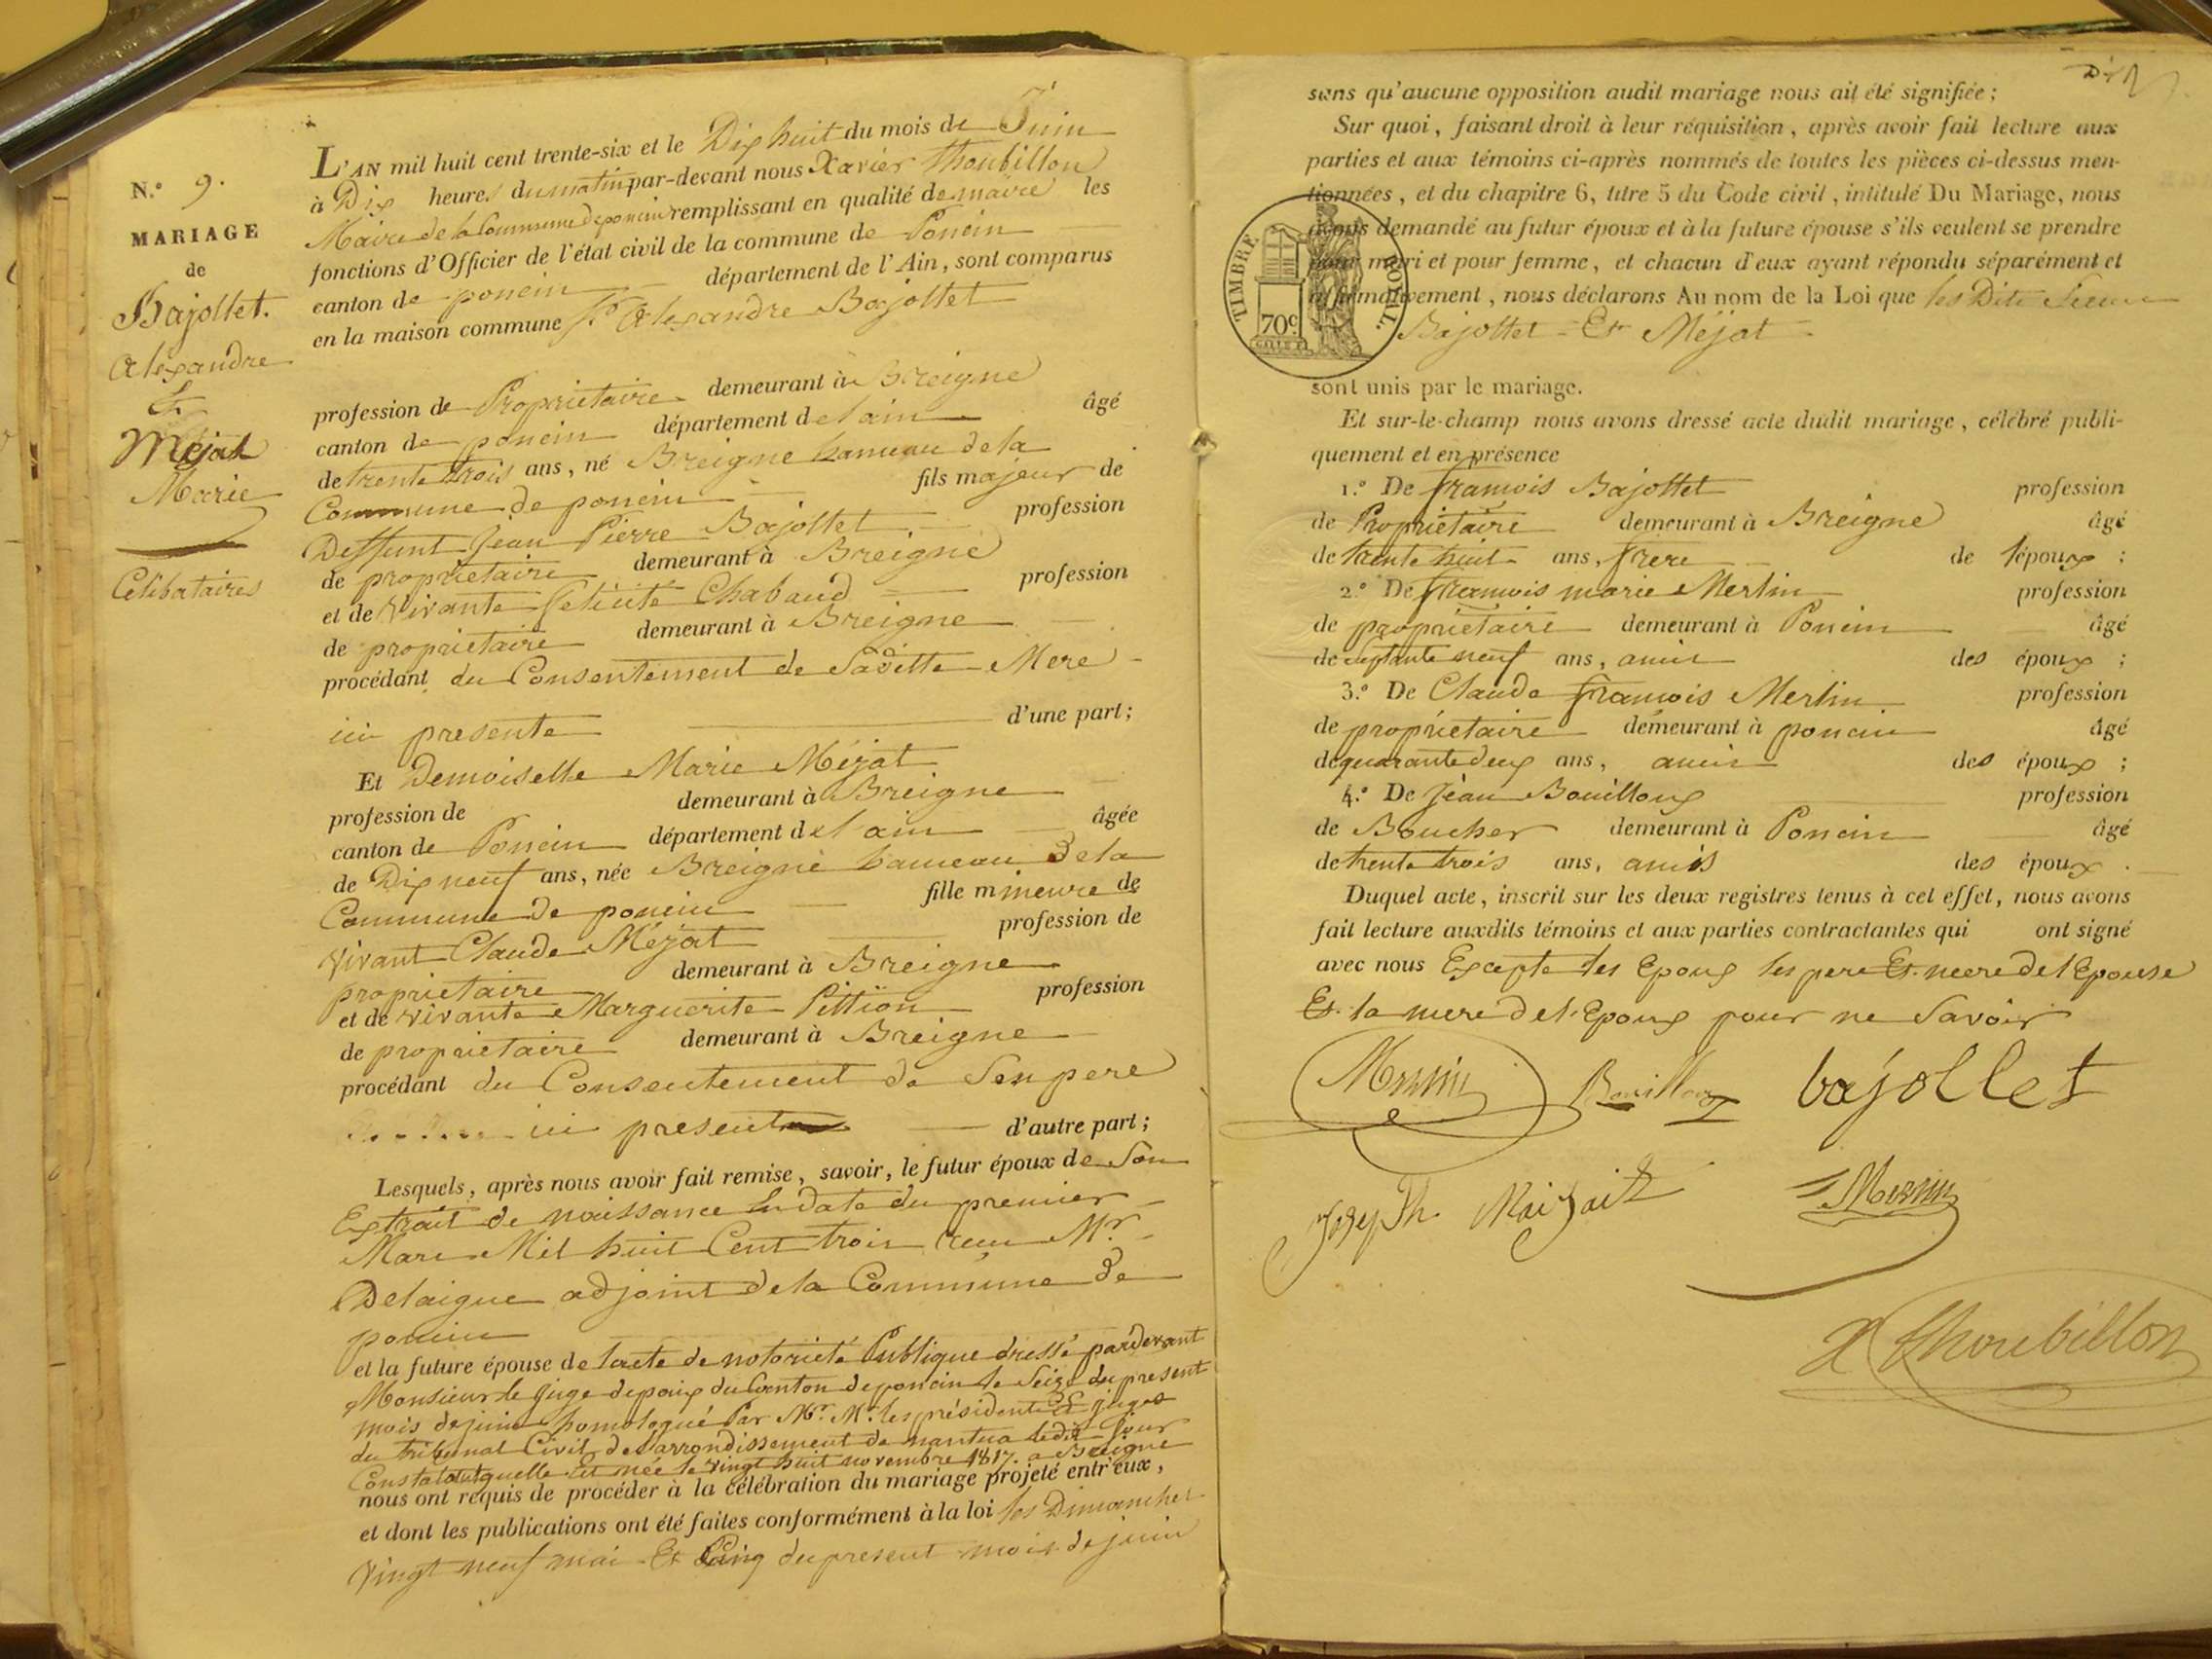 N.° 9.
MARIAGE
de
Bajollet.
Alexandre
Et
Méjat
Marie
Célibataires
L'AN mil huit cent trente-six et le Dix huit du mois de Juin
à Dix heures du matin par-devant nous Xavier Thoubillon
Maire de la Commune de poncin remplissant en qualité de maire les
fonctions d'Officier de l'état civil de la commune de Poncin
canton de poncin département de l'Ain, sont comparus
en la maison commune Sr Alexandre Bajollet
profession de Propriétaire demeurant à Breigne
canton de poncin département de l'ain âgé
de trente trois ans, né Breigne hameau de la
Commune de poncin fils majeur de
Deffunt Jean Pierre Bajollet profession
de propriétaire demeurant à Breigne
et de vivante Felicité Chabaud profession
de propriétaire demeurant à Breigne
procédant du Consentement de Saditte Mere
ici presente d'une part;
Et Demoiselle Marie Méjat
profession de demeurant à Breigne
canton de Poncin département de l'ain âgée
de Dix neuf ans, née Breigne hameau de la
Commune de poncin fille mineure de
vivant Claude Méjat profession de
propriétaire demeurant à Breigne
et de vivante Marguerite Pittion profession
de propriétaire demeurant à Breigne
procédant du Consentement de Son pere
ici present d'autre part;
Lesquels, après nous avoir fait remise, savoir, le futur époux de Son
Extrait de naissance En date du premier
Mars Mil huit Cent trois reçu Mr
Delaigue adjoint de la Commune de
poncin
et la future épouse de l'acte de notorieté Publique dressé pardevant
Monsieur le Juge de paix du Canton de poncin le Seize du present
mois de juin homologué Par Mr. Mr. les présidents Et juges
du tribunal Civil de l'arrondissement de nantua ledit Jour
Constatant quelle Est née le vingt huit novembre 1817. a Breigne
nous ont requis de procéder à la célébration du mariage projeté entr'eux,
et dont les publications ont été faites conformément à la loi les Dimanches
vingt neuf mai Et Cinq du present mois de juin
sans qu'aucune opposition audit mariage nous ait été signifiée;
Sur quoi, faisant droit à leur réquisition, après avoir fait lecture aux
parties et aux témoins ci-après nommés de toutes les pièces ci-dessus men-
tionnées, et du chapitre 6, titre 5 du Code civil, intitulé Du Mariage, nous
avons demandé au futur époux et à la future épouse s'ils veulent se prendre
pour mari et pour femme, et chacun d'eux ayant répondu séparément et
affirmativement, nous déclarons Au nom de la Loi que les Dits
Bajollet Et Méjat
TIMBRE ROYAL.
70c.
sont unis par le mariage.
Et sur-le-champ nous avons dressé acte dudit mariage, célébré publi-
quement et en présence
1.° De François Bajollet profession
de Propriétaire demeurant à Breigne âgé
de trente huit ans, frere de l'époux;
2.° De François marie Merlin profession
de propriétaire demeurant à Poncin âgé
de septante neuf ans, amis des époux;
3.° De Claude François Merlin profession
de propriétaire demeurant à poncin âgé
de quarante deux ans, amis des époux;
4.° De Jean Bouilloux profession
de Boucher demeurant à Poncin âgé
de trente trois ans, amis des époux.
Duquel acte, inscrit sur les deux registres tenus à cet effet, nous avons
fait lecture auxdits témoins et aux parties contractantes qui ont signé
avec nous Excepte les Epoux les pere Et mere de l'Epouse
Et la mere de l'Epoux pour ne Savoir
Bouilloux bajollet
Joseph
X Thoubillon